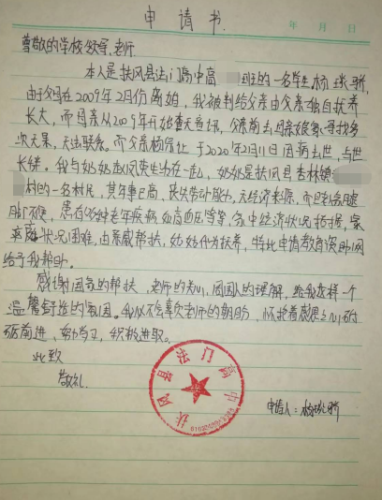 申请书
年 月 日
尊敬的学校领导、老师
本人是扶风县法门高中高 班的一名学生杨
由于父母在2009年2月份离婚,我被判给父亲由父亲独自抚养
长大,而母亲从2009年开始杳无音讯,父亲前去母亲娘家寻找多
次无果,无法联系。而父亲杨 于2020年2月11日因病去世,与世
长辞。我与奶奶 生活在一起,奶奶是扶风县杏林镇
村的一名村民,其年事已高,丧失劳动能力,无经济来源,而且
脚不便,患有多种老年疾病 等等,家中经济状况拮据,家
庭 状况困难,由亲戚帮扶, 抚养,特此申请教育资助
给予我帮助。
感谢国家的帮扶,老师的关心,同学的理解,给我这样一个
温馨舒适的家园。我 不会辜负老师的期盼,怀揣着感恩之心
砺前进,努力学习,积极进取。
此致
敬礼
扶风县法门高中
申请人:杨